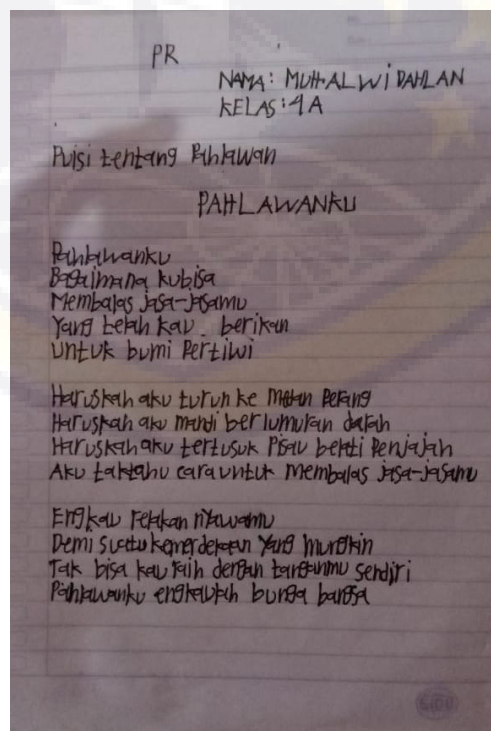 PR
NAMA: MUH ALWi DAHLAN
KELAS: 4A
Puisi tentang Pahlawan
PAHLAWANKU
Pahlawanku
Bagaimana kubisa
Membalas Jasa-Jasamu
Yang telah kau berikan
Untuk bumi Pertiwi
Haruskah aku turun ke Medan Perang
Haruskah aku mandi berlumuran darah
Haruskah aku tertusuk Pisau belati Penjajah
Aku taktahu cara untuk Membalas Jasa-Jasamu
Engkau relakan nyawamu
Demi suatu kemerdekaan Yang mungkin
Tak bisa kau raih dengan tanganmu sendiri
Pahlawanku engkaulah bunga bangsa
SIDU